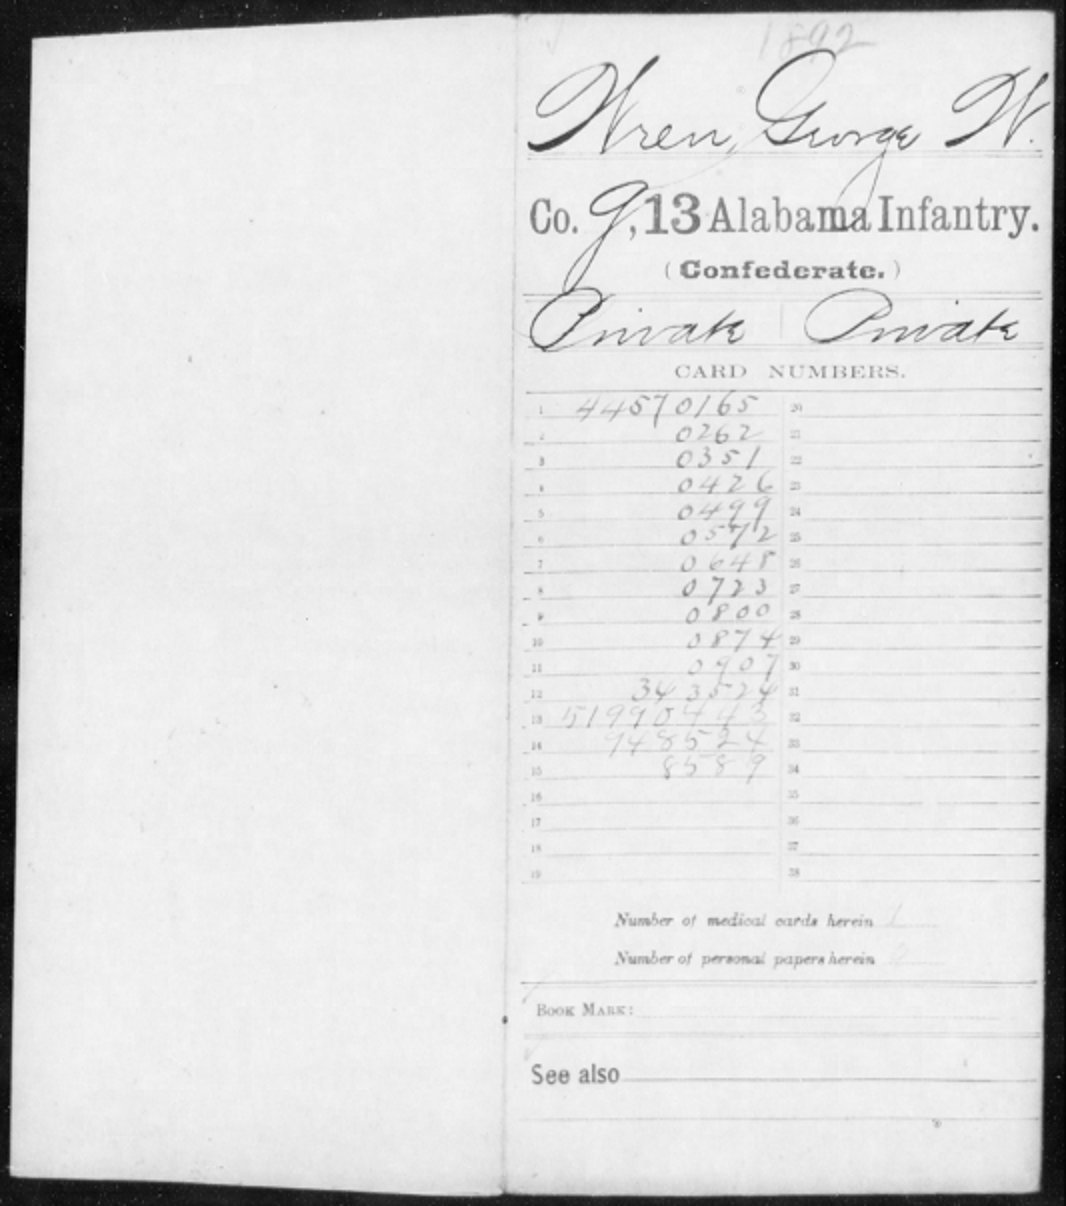 1892
Wren, George W.
Co. G, 13 Alabama Infantry.
(Confederate.)
Private Private
CARD NUMBERS.
1 44570165 20
2 0262 21
3 0351 22
4 0426 23
5 0499 24
6 0572 25
7 0648 26
8 0723 27
9 0800 28
10 0874 29
11 0907 30
12 343524 31
13 51990443 32
14 948524 33
15 8589 34
16 35
17 36
18 37
19 38
Number of medical cards herein 1
Number of personal papers herein 2
BOOK MARK:
See also